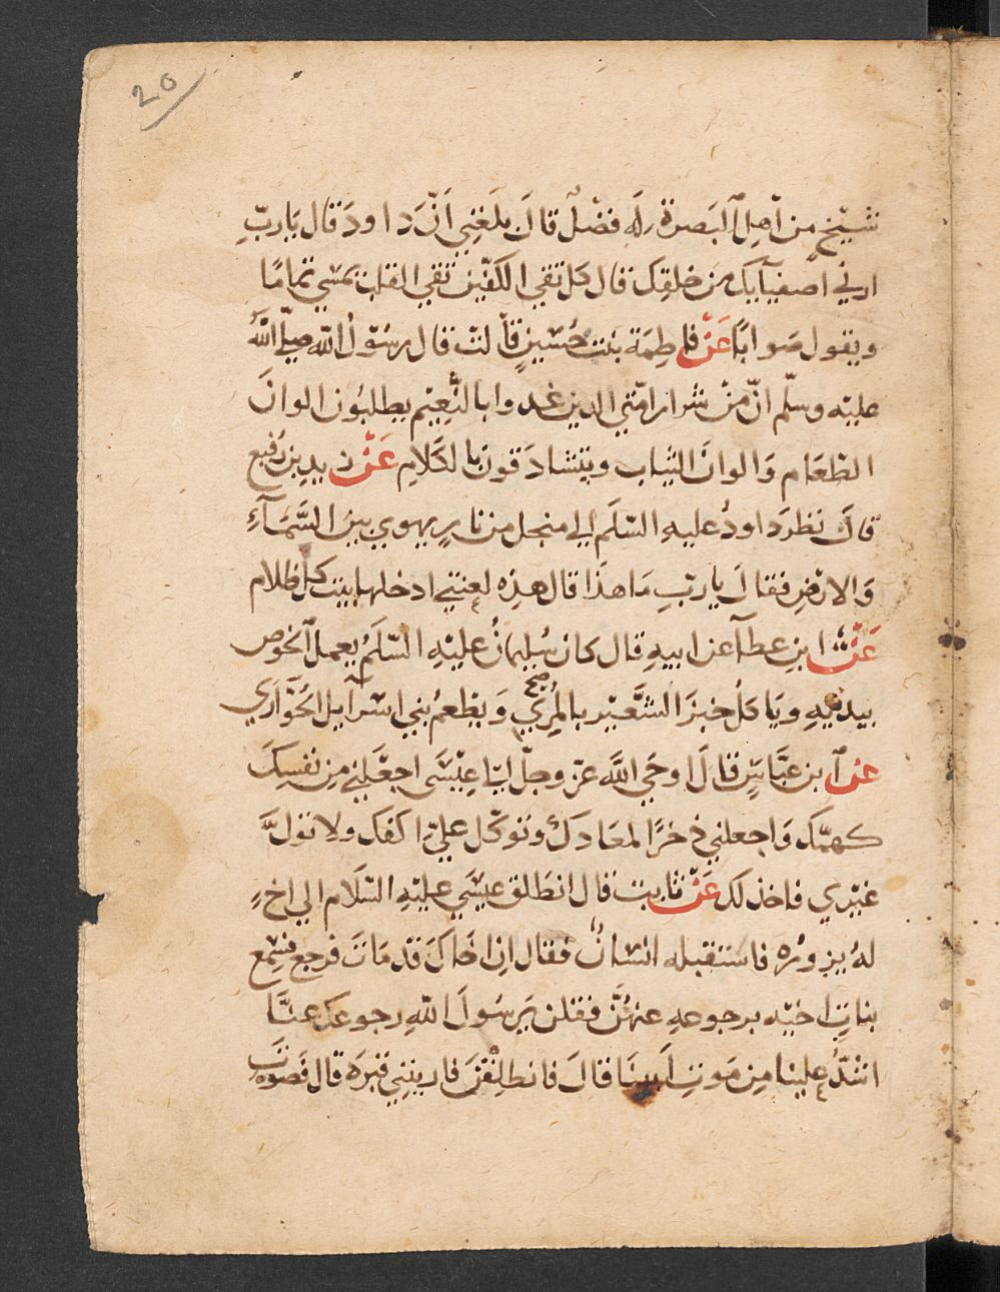 20
شيخ من اهل البصرة له فضل قال بلغني ان داود قال يارب
ارني اصفيآيك من خلقك قال كل نقي الكفين نقي القلب يمشي تماما
ويقول صوابا عن فاطمة بنت حسين قالت قال رسول الله صلى الله
عليه وسلم ان من شرار امتي الدين غدوا بالنعيم يطلبون الوان
الطعام والوان الثياب ويتشادقون بالكلام عن زيد بن رفيع
قال نظر داود عليه السلم الي منجل من نار يهوي بين السمآء
والارض فقال يارب ما هذا قال هذه لعنتي ادخلها بيت كل ظلام
عن ابن عطآ عن ابيه قال كان سليمان عليه السلم يعمل الخوص
بيديه وياكل خبز الشعير بالمري ويطعم بني اسرآيل الحواري
عن ابن عباس قال اوحي الله عز وجل الي عيسى اجعلني من نفسك
كهمك واجعلني ذخرا لمعادك وتوكل علي اكفك ولا تول
غيري فاخذلك عن ثابت قال انطلق عيسي عليه السلام الي اخ
له يزوره فاستقبله انسان فقال ان اخاك قد مات فرجع فسمع
بنات اخيه برجوعه عنهن فقلن يرسول الله رجوعك عنا
اشد علينا من موت ابينا قال فانطلقن فارينني قبره قال فصوت